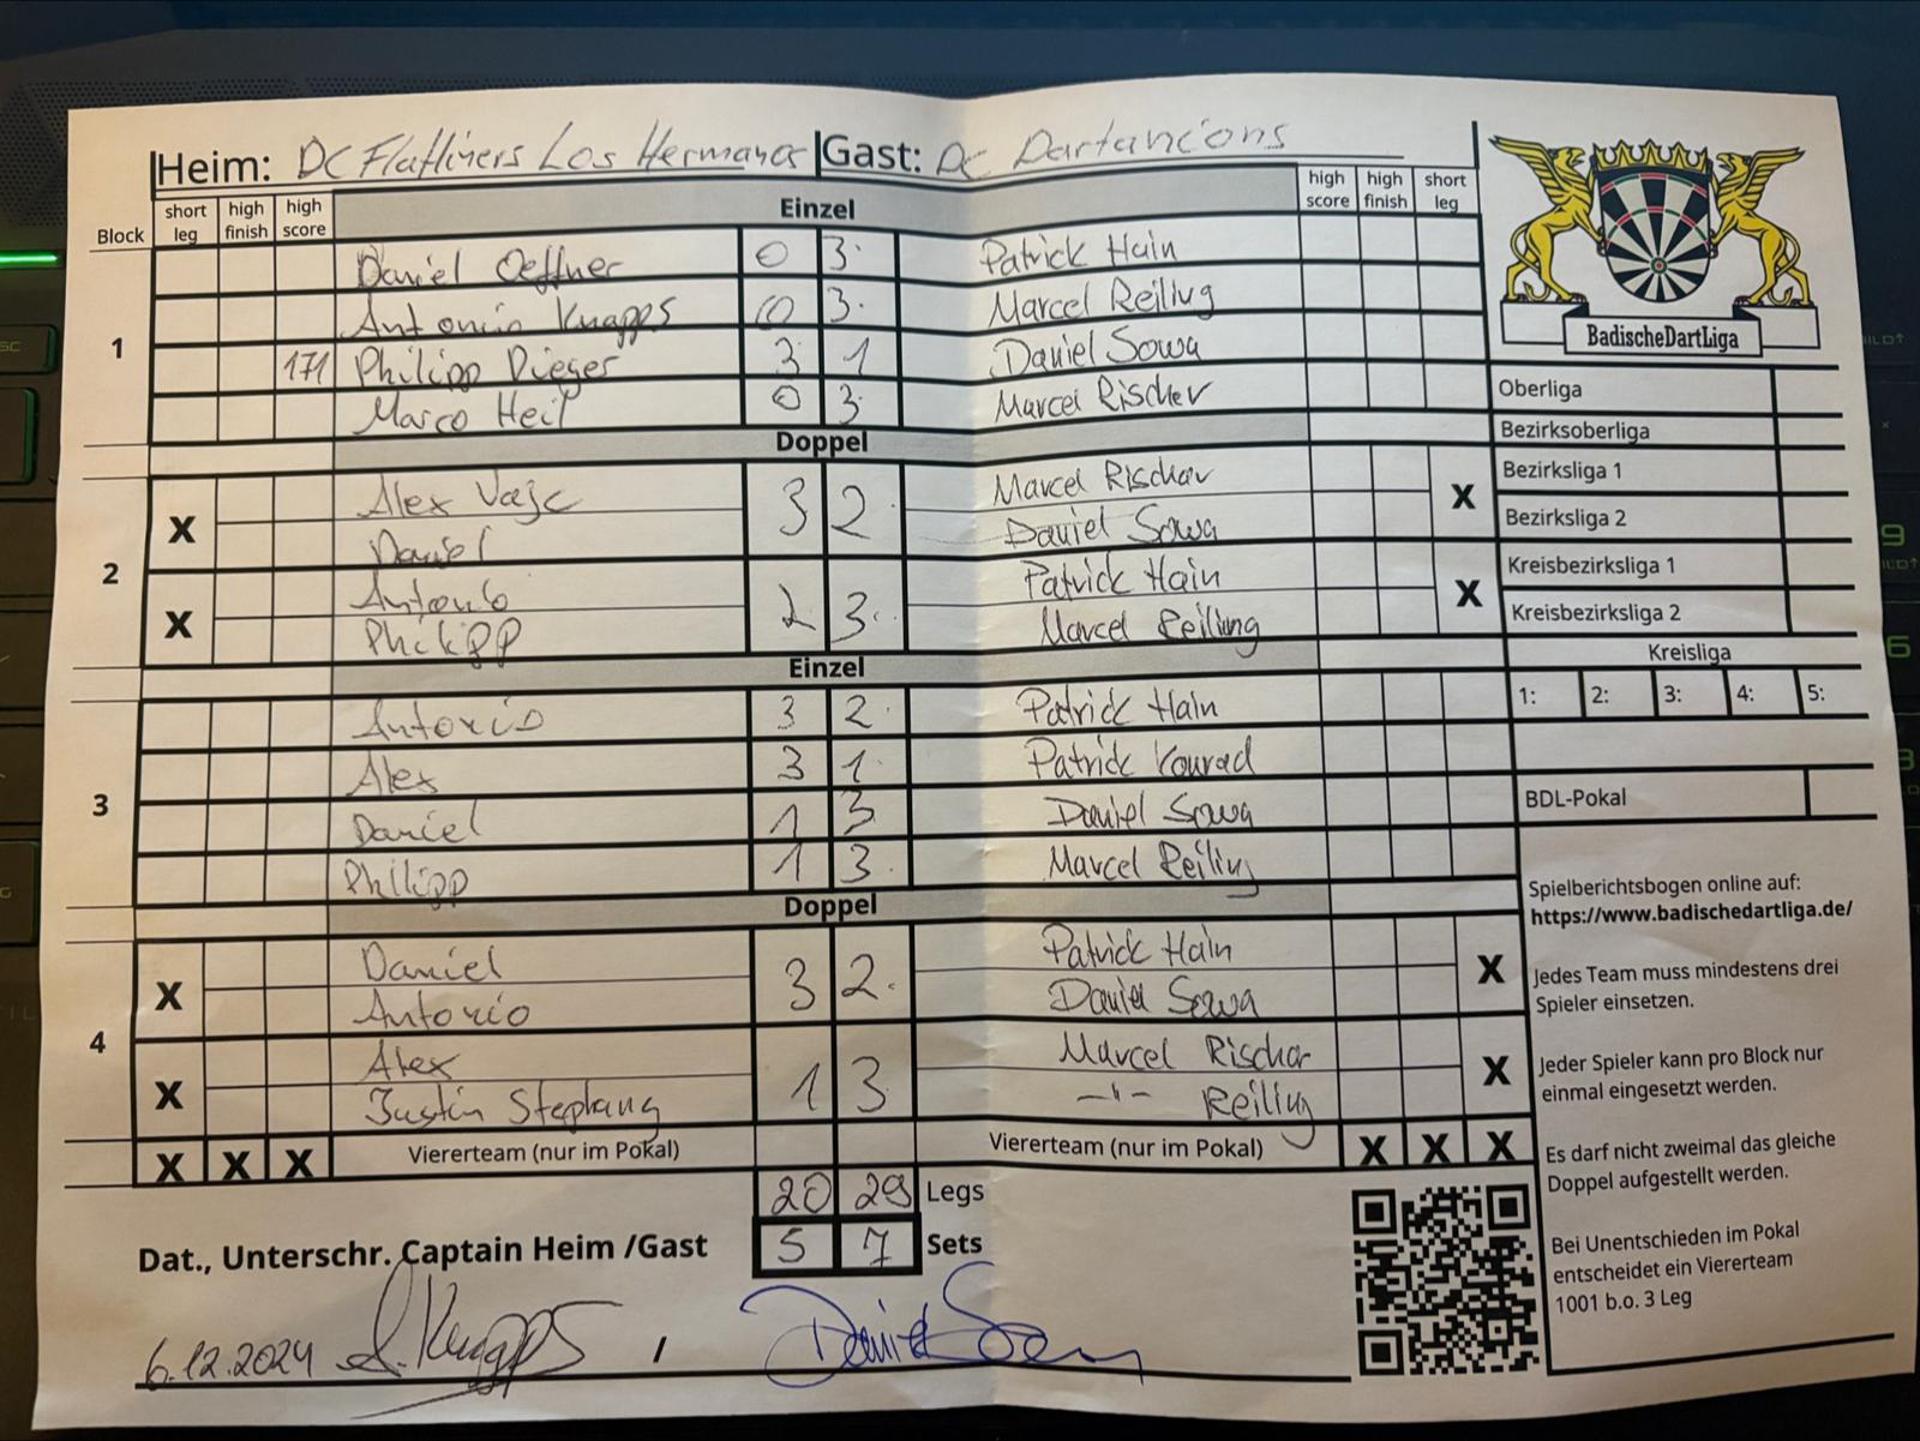 Heim: DC Flatliners Los Hermanos Gast: DC Dartancions
Block short leg high finish high score Einzel high score high finish short leg
1
Daniel Oeffner 0 3 Patrick Hain
Antonio Knapps 0 3 Marcel Reiling
171 Philipp Dieger 3 1 Daniel Sowa
Marco Heil 0 3 Marcel Rischer
Doppel
2
X Alex Vajc 3 2 Marcel Rischar X
Daniel Daniel Sowa
X Antonio 2 3 Patrick Hain X
Philipp Marcel Reiling
Einzel
3
Antonio 3 2 Patrick Hain
Alex 3 1 Patrick Konrad
Daniel 1 3 Daniel Sowa
Philipp 1 3 Marcel Reiling
Doppel
4
X Daniel 3 2 Patrick Hain X
Antonio Daniel Sowa
X Alex 1 3 Marcel Rischar X
Justin Stephany -"- Reiling
X X X Viererteam (nur im Pokal) Viererteam (nur im Pokal) X X X
20 29 Legs
5 7 Sets
Dat., Unterschr. Captain Heim /Gast
6.12.2024 A. Knapps / Daniel Sowa
BadischeDartLiga
Oberliga
Bezirksoberliga
Bezirksliga 1
Bezirksliga 2
Kreisbezirksliga 1
Kreisbezirksliga 2
Kreisliga
1: 2: 3: 4: 5:
BDL-Pokal
Spielberichtsbogen online auf:
https://www.badischedartliga.de/
Jedes Team muss mindestens drei
Spieler einsetzen.
Jeder Spieler kann pro Block nur
einmal eingesetzt werden.
Es darf nicht zweimal das gleiche
Doppel aufgestellt werden.
Bei Unentschieden im Pokal
entscheidet ein Viererteam
1001 b.o. 3 Leg